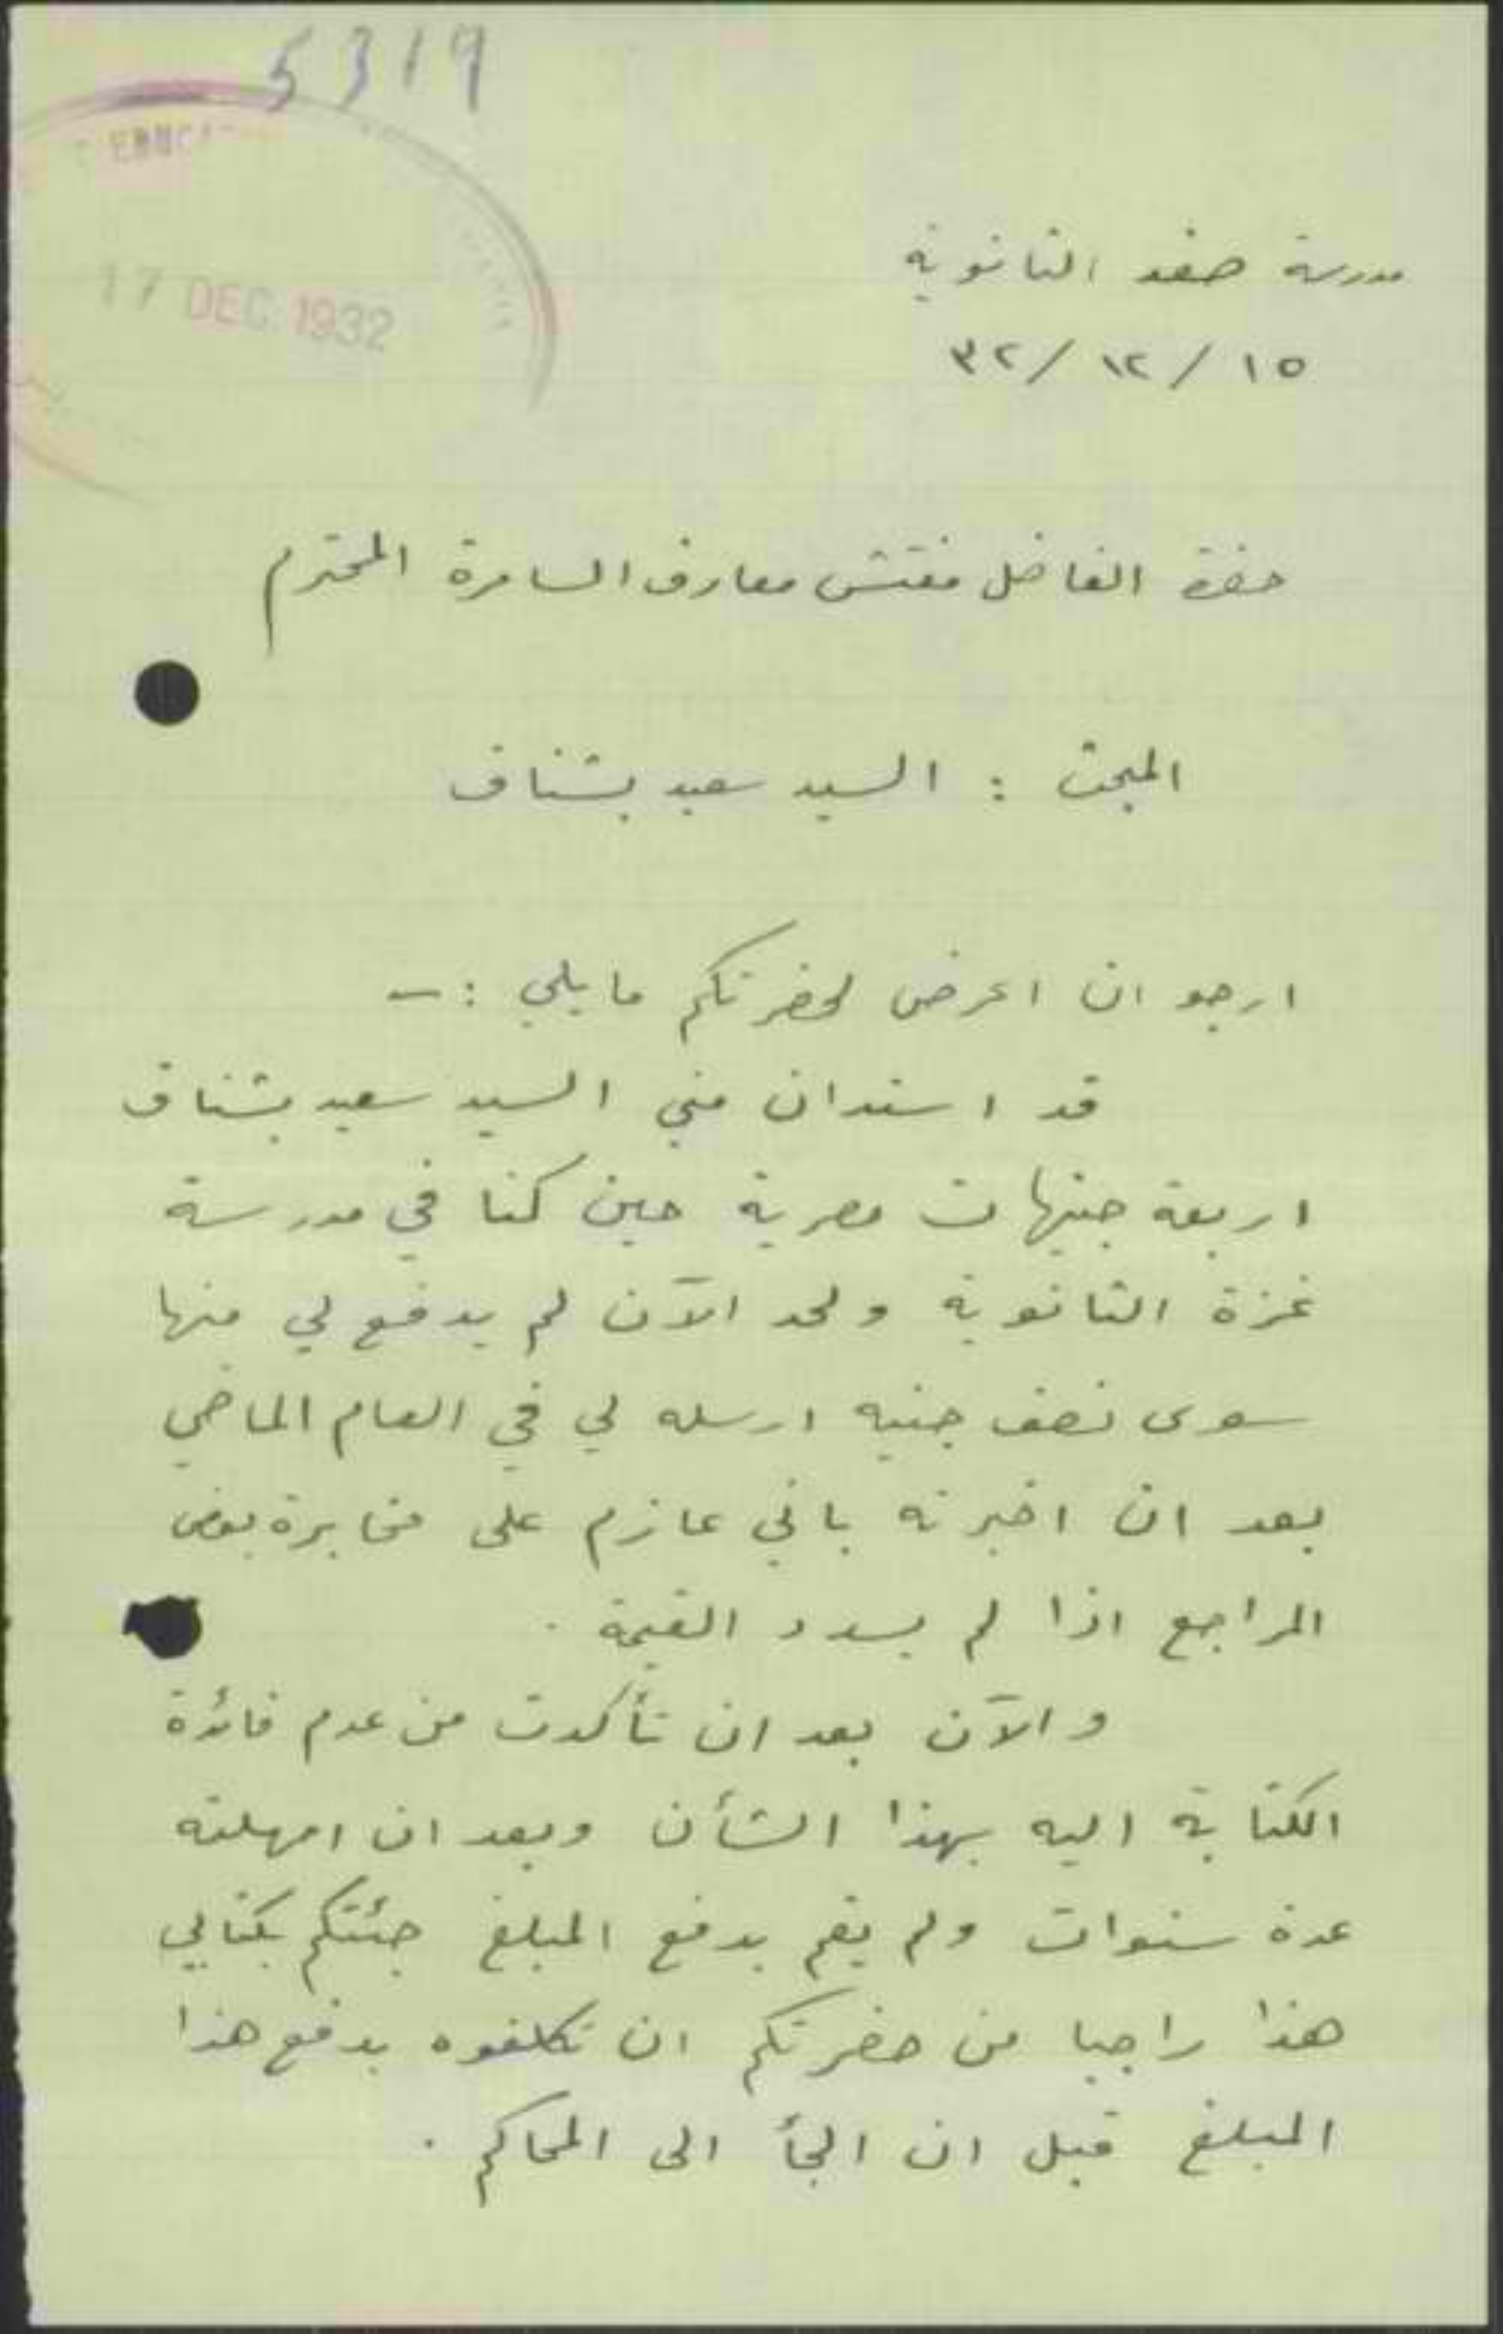 5319
EDUCAT
17 DEC 1932
مدرسة صفد الثانوية
١٥/ ١٢/ ٣٢
حضرة الفاضل مفتش معارف السامرة المحترم
المبحث : السيد سعيد بشناق
ارجو ان اعرض لحضرتكم ما يلي :-
قد استدان مني السيد سعيد بشناق
اربعة جنيهات مصرية حين كنا في مدرسة
غزة الثانوية ولحد الآن لم يدفع لي منها
سوى نصف جنيه ارسله لي في العام الماضي
بعد ان اخبرته باني عازم على مخابرة بعض
المراجع اذا لم يسدد القيمة .
والآن بعد ان تأكدت من عدم فائدة
الكتابة اليه بهذا الشأن وبعد ان امهلته
عدة سنوات ولم يقم بدفع المبلغ جئتكم بكتابي
هذا راجيا من حضرتكم ان تكلفوه بدفع هذا
المبلغ قبل ان الجأ الى المحاكم .